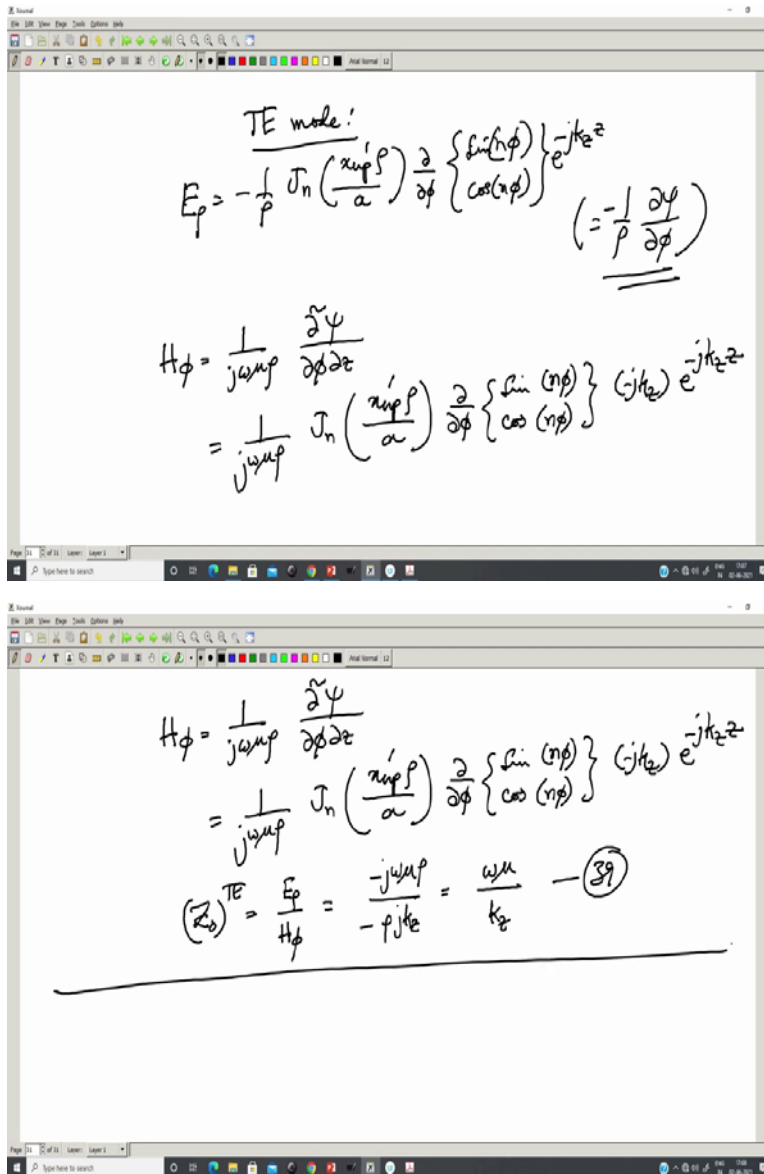 Xournal
File Edit View Page Tools Options Help
Arial Normal 12
TE mode:
E_ρ = -1/ρ J_n (x'_{np} ρ / a) ∂/∂φ {sin(nφ) cos(nφ)} e^{-jk_z z}
(= -1/ρ ∂ψ/∂φ)
H_φ = 1/(jωμρ) ∂²ψ/(∂φ∂z)
= 1/(jωμρ) J_n (x'_{np} ρ / a) ∂/∂φ {sin (nφ) cos (nφ)} (-jk_z) e^{-jk_z z}
Page 31 of 31 Layer: Layer 1
Type here to search
ENG 17:07
IN 02-06-2021
Xournal
File Edit View Page Tools Options Help
Arial Normal 12
H_φ = 1/(jωμρ) ∂²ψ/(∂φ∂z)
= 1/(jωμρ) J_n (x'_{np} ρ / a) ∂/∂φ {sin (nφ) cos (nφ)} (-jk_z) e^{-jk_z z}
(Z_0)^{TE} = E_ρ/H_φ = -jωμρ/(-ρjk_z) = ωμ/k_z — (39)
Page 31 of 31 Layer: Layer 1
Type here to search
ENG 17:08
IN 02-06-2021